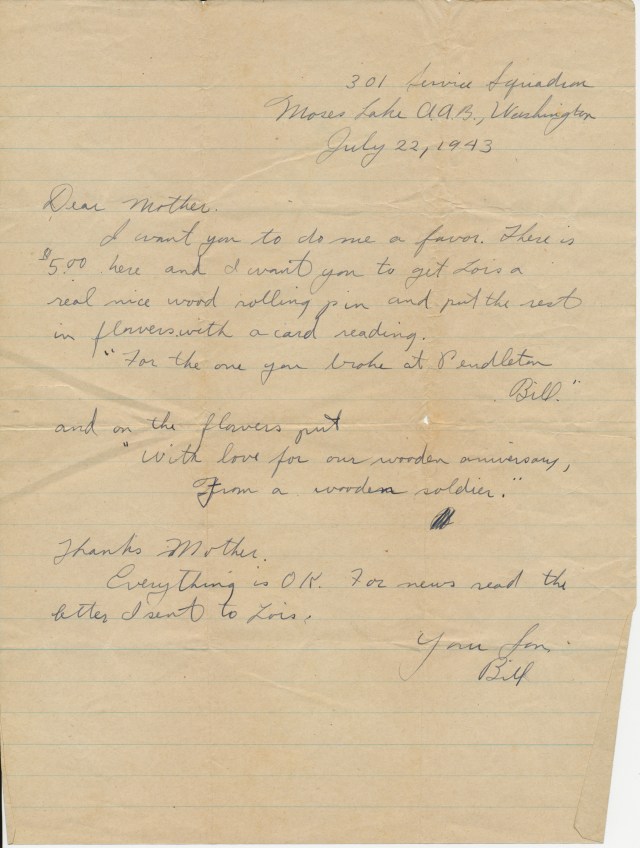 301 Service Squadron
Moses Lake A.A.B., Washington
July 22, 1943
Dear Mother.
I want you to do me a favor. There is
$5.00 here and I want you to get Lois a
real nice wood rolling pin and put the rest
in flowers with a card reading.
"For the one you broke at Pendleton
Bill."
and on the flowers put
"With love for our wooden aniversary,
From a wooden soldier."
Thanks Mother.
Everything is O.K. For news read the
letter I sent to Lois.
Your Son.
Bill